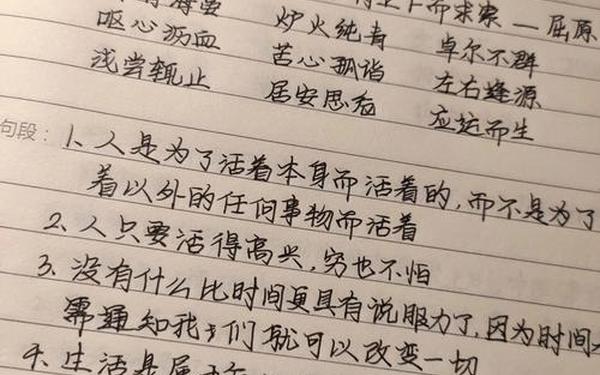 上下而求索 — 屈原
呕心沥血 炉火纯青 卓尔不群
浅尝辄止 苦心孤诣 左右逢源
居安思危 应运而生
句段：1、人是为了活着本身而活着的，而不是为了
着以外的任何事物而活着
2、人只要活得高兴，穷也不怕
3、没有什么比时间更具有说服力了，因为时间
需通知我们就可以改变一切
4、生活是属于